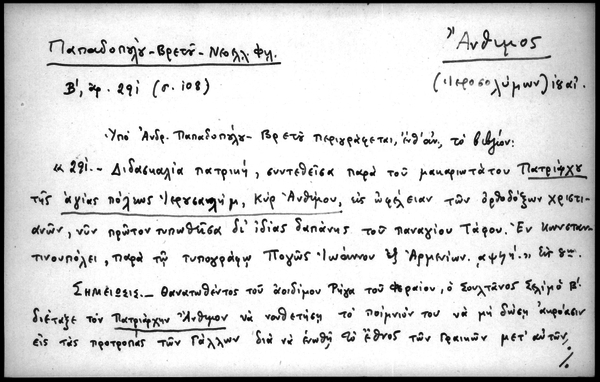 Παπαδοπούλου-Βρετοῦ-Νεοελλ. Φιλ.
Ἄνθιμος
Β', ἀρ. 291 (σ. 108)
(Ἱεροσολύμων)
Ὑπὸ Ἀνδρ. Παπαδοπούλου-Βρετοῦ περιγράφεται, τὸ βιβλίον:
«291.- Διδασκαλία πατρική, συντεθεῖσα παρὰ τοῦ μακαριωτάτου Πατριάρχου
τῆς ἁγίας πόλεως Ἱερουσαλήμ, Κὺρ Ἀνθίμου, εἰς ὠφέλειαν τῶν ὀρθοδόξων χριστι-
ανῶν, νῦν πρῶτον τυπωθεῖσα δι' ἰδίας δαπάνης τοῦ παναγίου Τάφου. Ἐν Κωνσταν-
τινουπόλει, παρὰ τῷ τυπογράφῳ Πογὼς Ἰωάννου ἐξ Ἀρμενίων.
Σημείωσις.- Θανατωθέντος τοῦ ἀοιδίμου Ρήγα τοῦ Φεραίου, ὁ Σουλτάνος Σελὶμ Β'
διέταξε τὸν Πατριάρχην Ἄνθιμον νὰ νουθετήσῃ τὸ ποίμνιόν του νὰ μὴ δώσῃ ἀκρόασιν
εἰς τὰς προτροπὰς τῶν Γάλλων διὰ νὰ ἑνωθῇ τὸ ἔθνος τῶν Γραικῶν μετ' αὐτῶν,